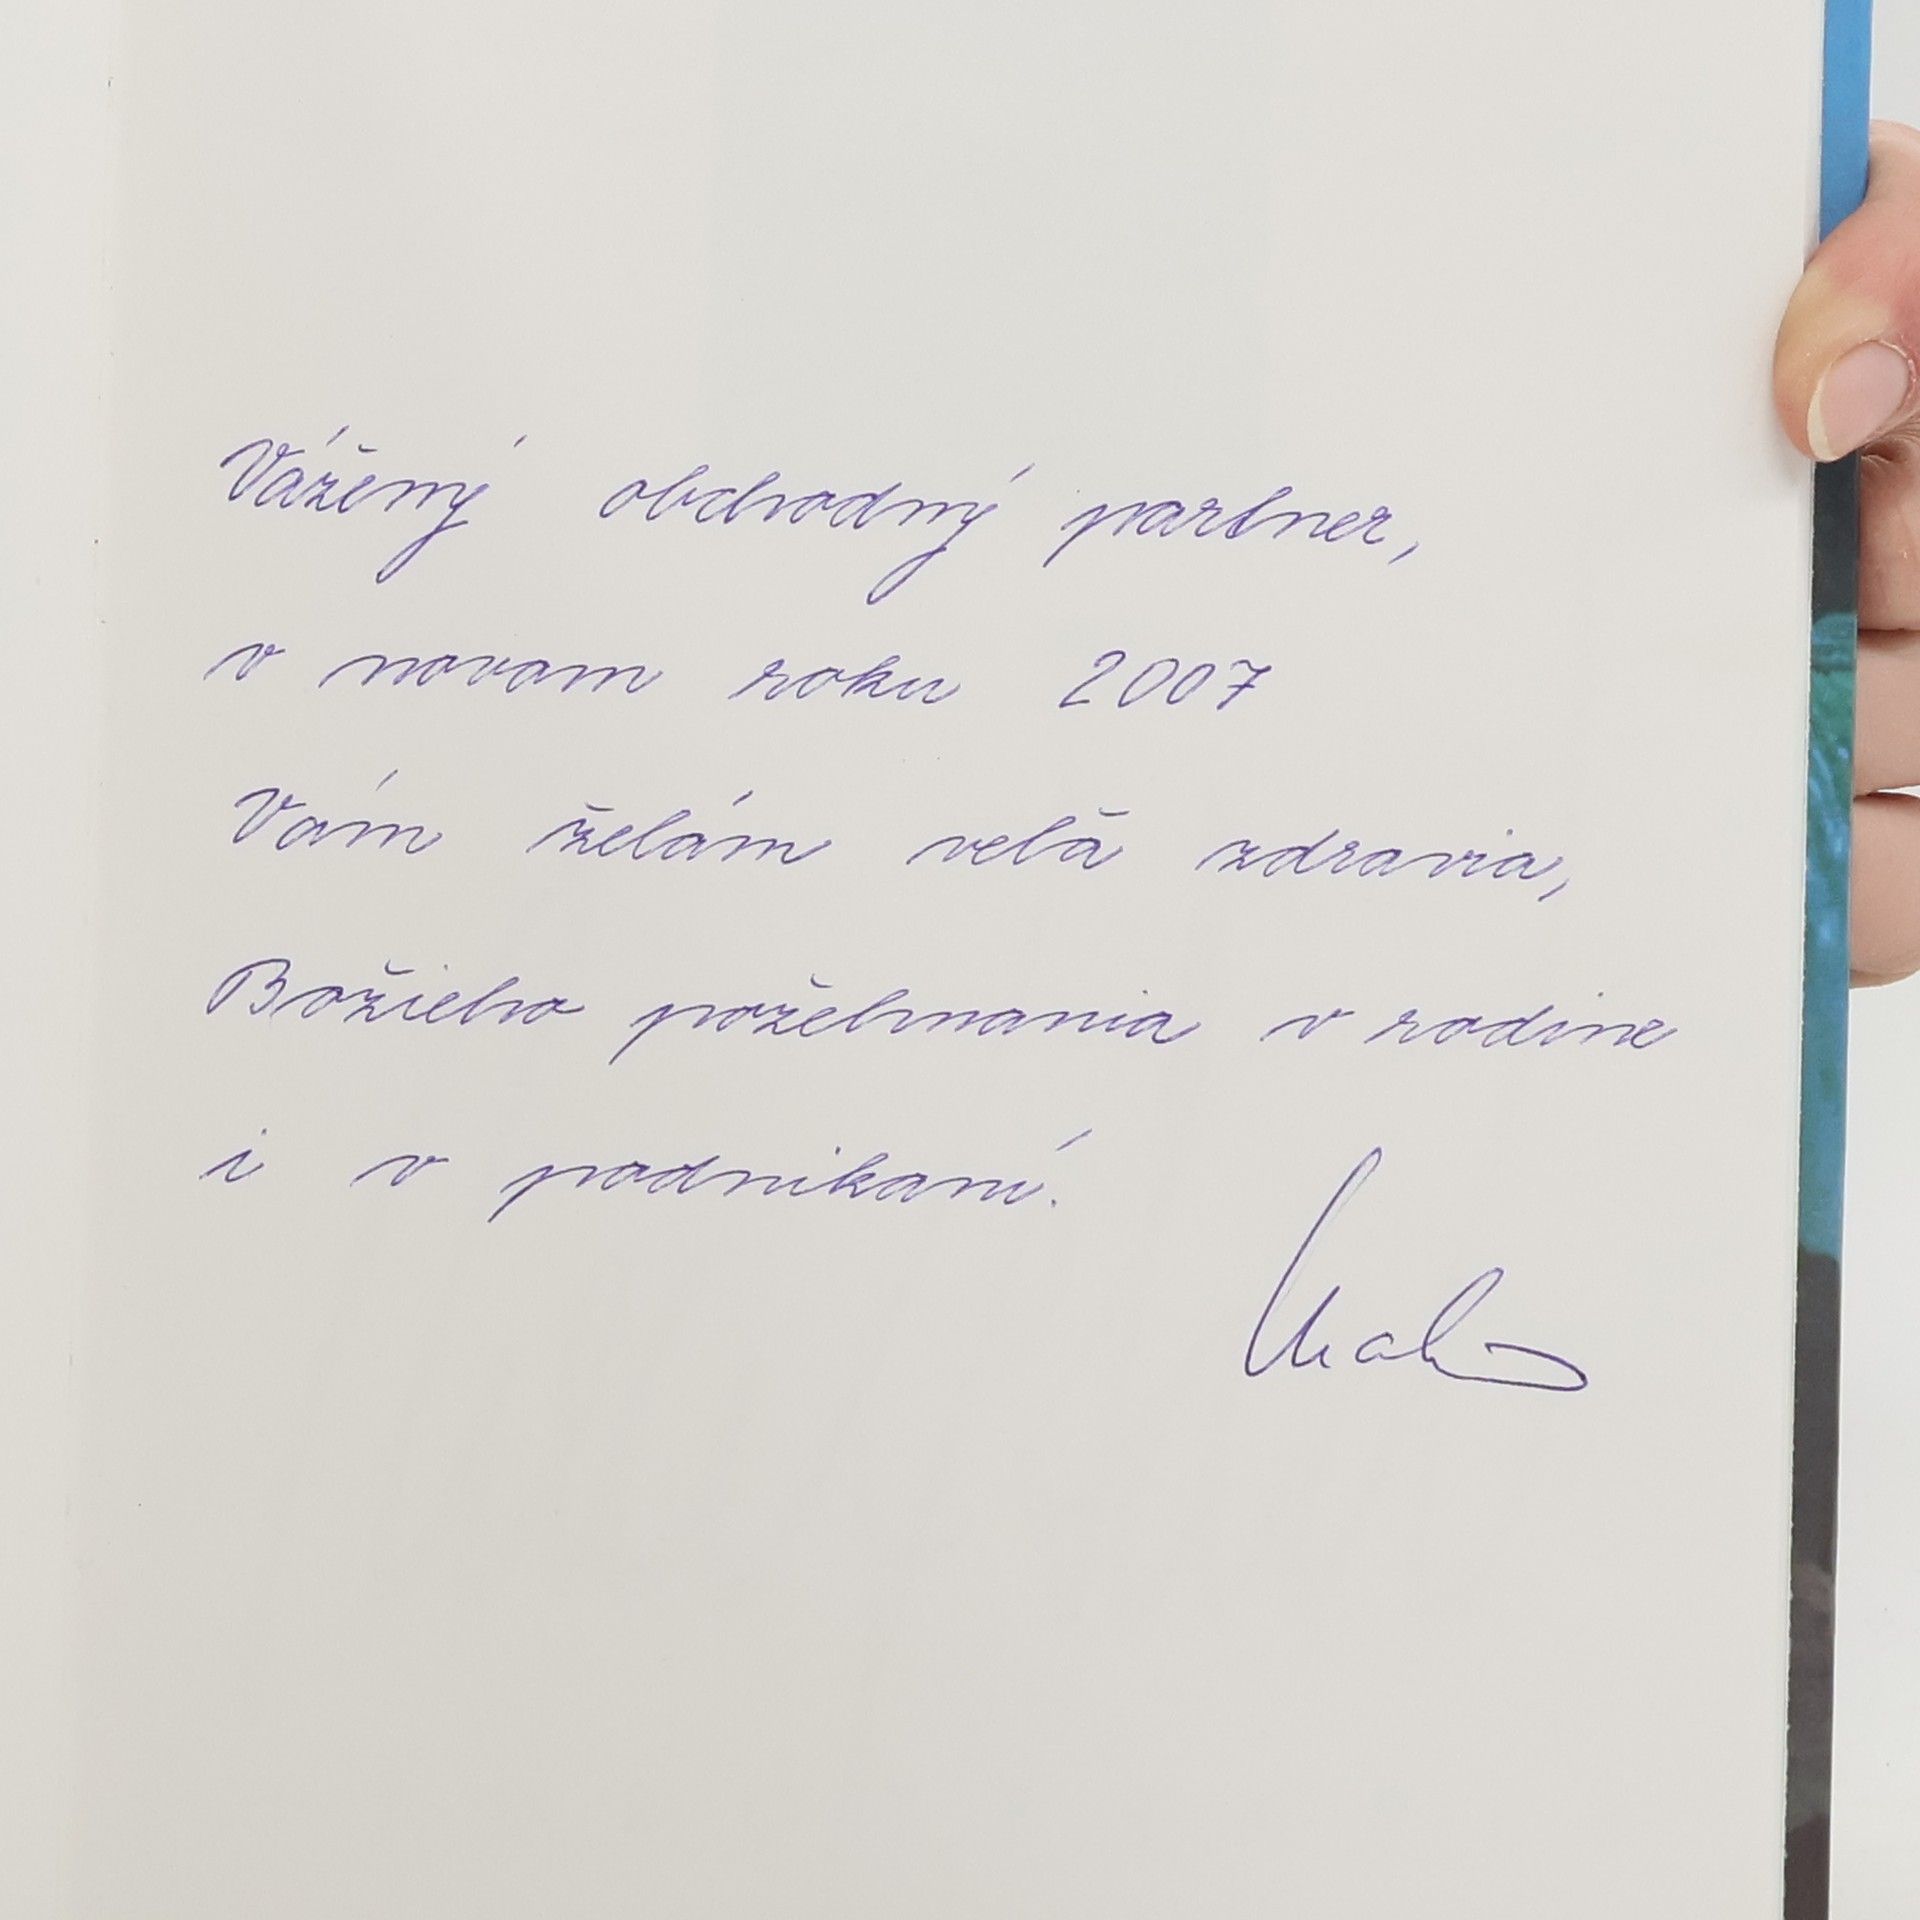 Vážený obchodný partner,
v novom roku 2007
Vám želám veľa zdravia,
Božieho požehnania v rodine
i v podnikaní.